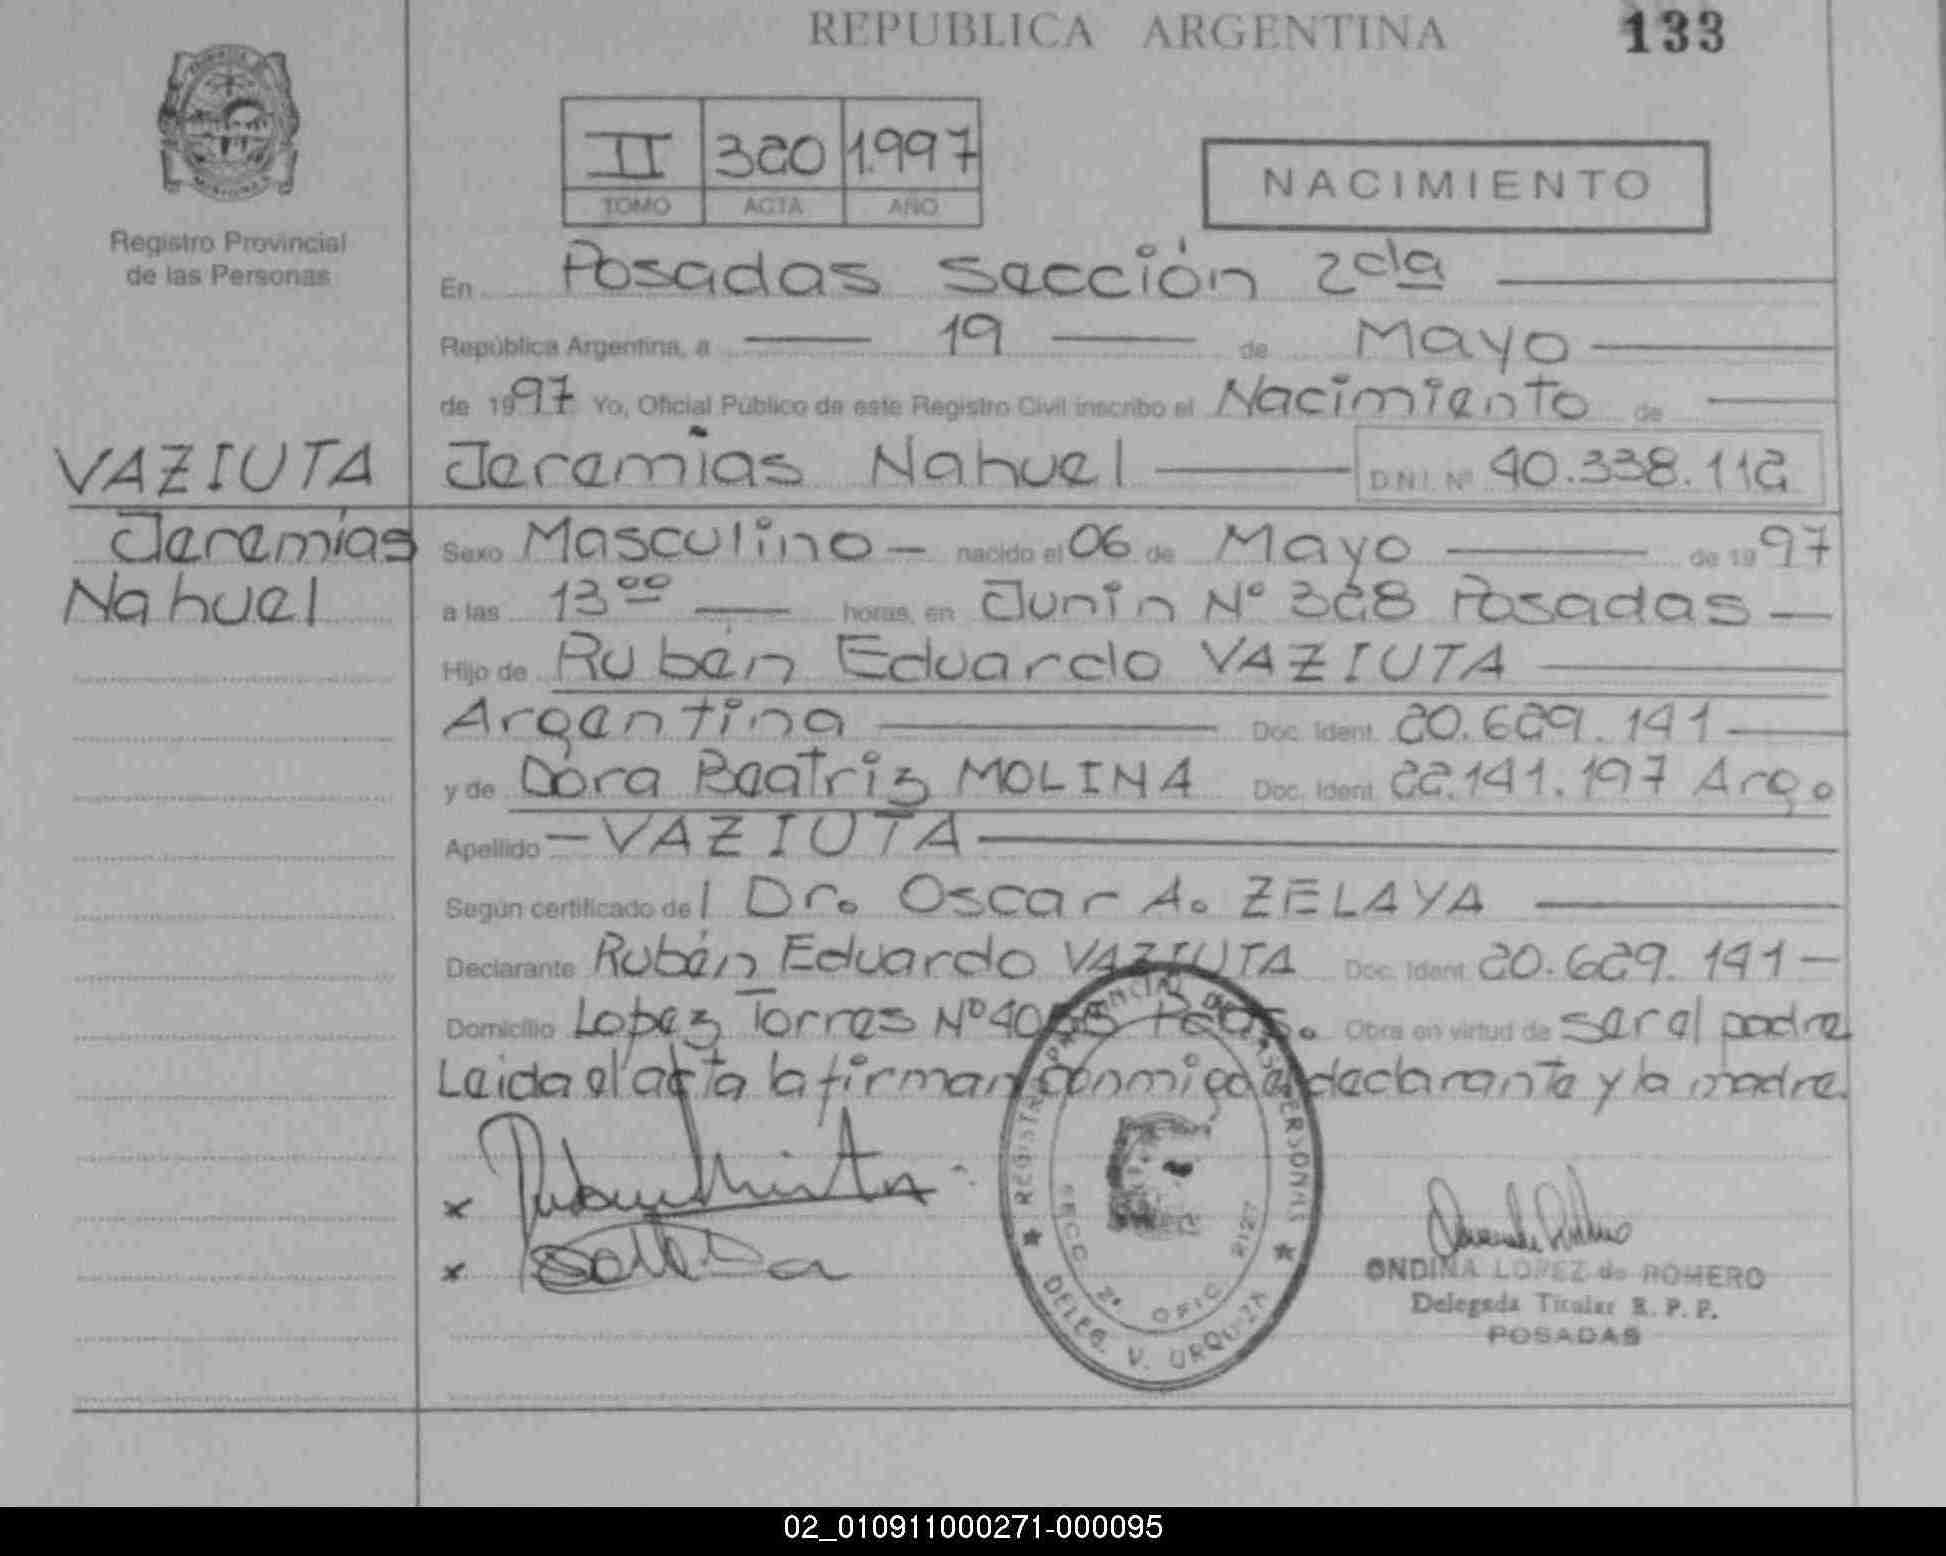 REPUBLICA ARGENTINA 133
II 320 1.997
TOMO ACTA AÑO
NACIMIENTO
Registro Provincial
de las Personas
En Posadas Sección 2da
República Argentina, a 19 de Mayo
de 1997 Yo, Oficial Público de este Registro Civil inscribo el Nacimiento de
VAZIUTA Jeremías Nahuel D.N.I. Nº 40.338.112
Jeremías Sexo Masculino nacido el 06 de Mayo de 1997
Nahuel a las 13⁰⁰ horas, en Junin Nº 328 Posadas
Hijo de Rubén Eduardo VAZIUTA
Argentina Doc. Ident. 20.629.141
y de Dora Beatriz MOLINA Doc. Ident. 22.141.197 Arg.
Apellido VAZIUTA
Según certificado del Dr. Oscar A. ZELAYA
Declarante Rubén Eduardo VAZIUTA Doc. Ident. 20.629.141
Domicilio Lopez Torres Nº Pdas. Obra en virtud de ser el padre
Leida el acta la firman conmigo el declarante y la madre.
REGISTRO PROVINCIAL DE LAS PERSONAS
SECC. 2ª OFIC. 2127
DELEG. V. URQUIZA
ONDINA LOPEZ de ROMERO
Delegada Titular R. P. P.
POSADAS
02_010911000271-000095